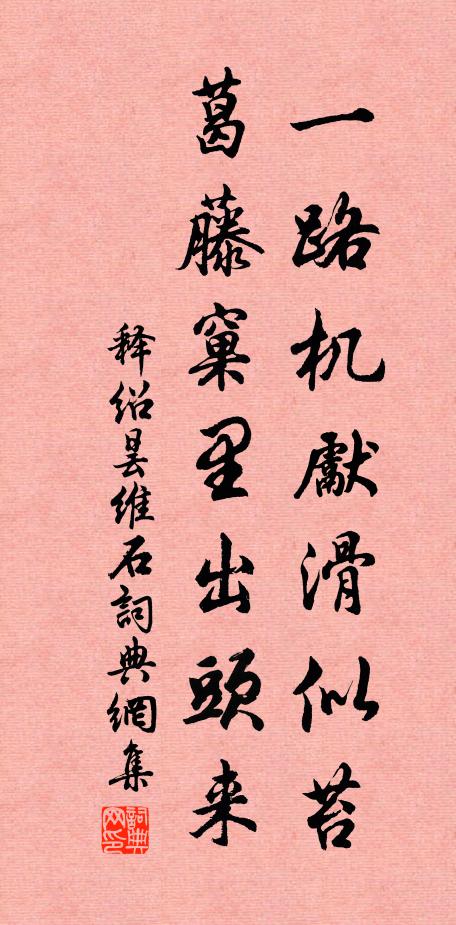 一路机獻滑似苔
葛藤窠里出頭来
释绍昙维石詞典網集
詞典网印